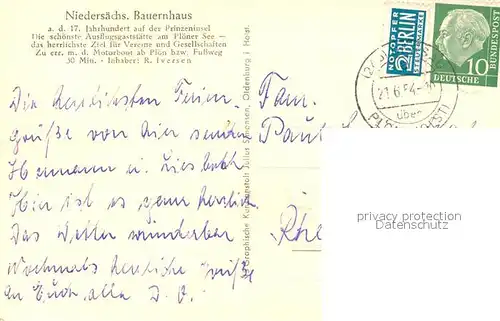 Niedersächs. Bauernhaus
a. d. 17. Jahrhundert auf der Prinzeninsel
Die schönste Ausflugsgaststätte am Plöner See —
das herrlichste Ziel für Vereine und Gesellschaften
Zu err. m. d. Motorboot ab Plön bzw. Fußweg
30 Min. - Inhaber: R. Iversen
Die herzlichsten Ferien-
grüße von hier senden
Hermann u. Liesbeth
Hier ist es ganz herrlich
Das Wetter wunderbar
Nochmals herzliche Grüße
an Euch alle D. O.
Graphische Kunstanstalt Julius Simonsen, Oldenburg i. Holst.
Fam.
Paul
NOTOPFER
2 BERLIN
STEUERMARKE
DEUTSCHE
BUNDESPOST
10
21.6.54
über
PLÖN (HOLST)
privacy protection
www.ansichtskartenversand.com